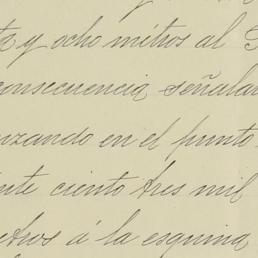 y ocho metros al
consecuencia señala
nzando en el punto
ciento tres mil
á la esquina